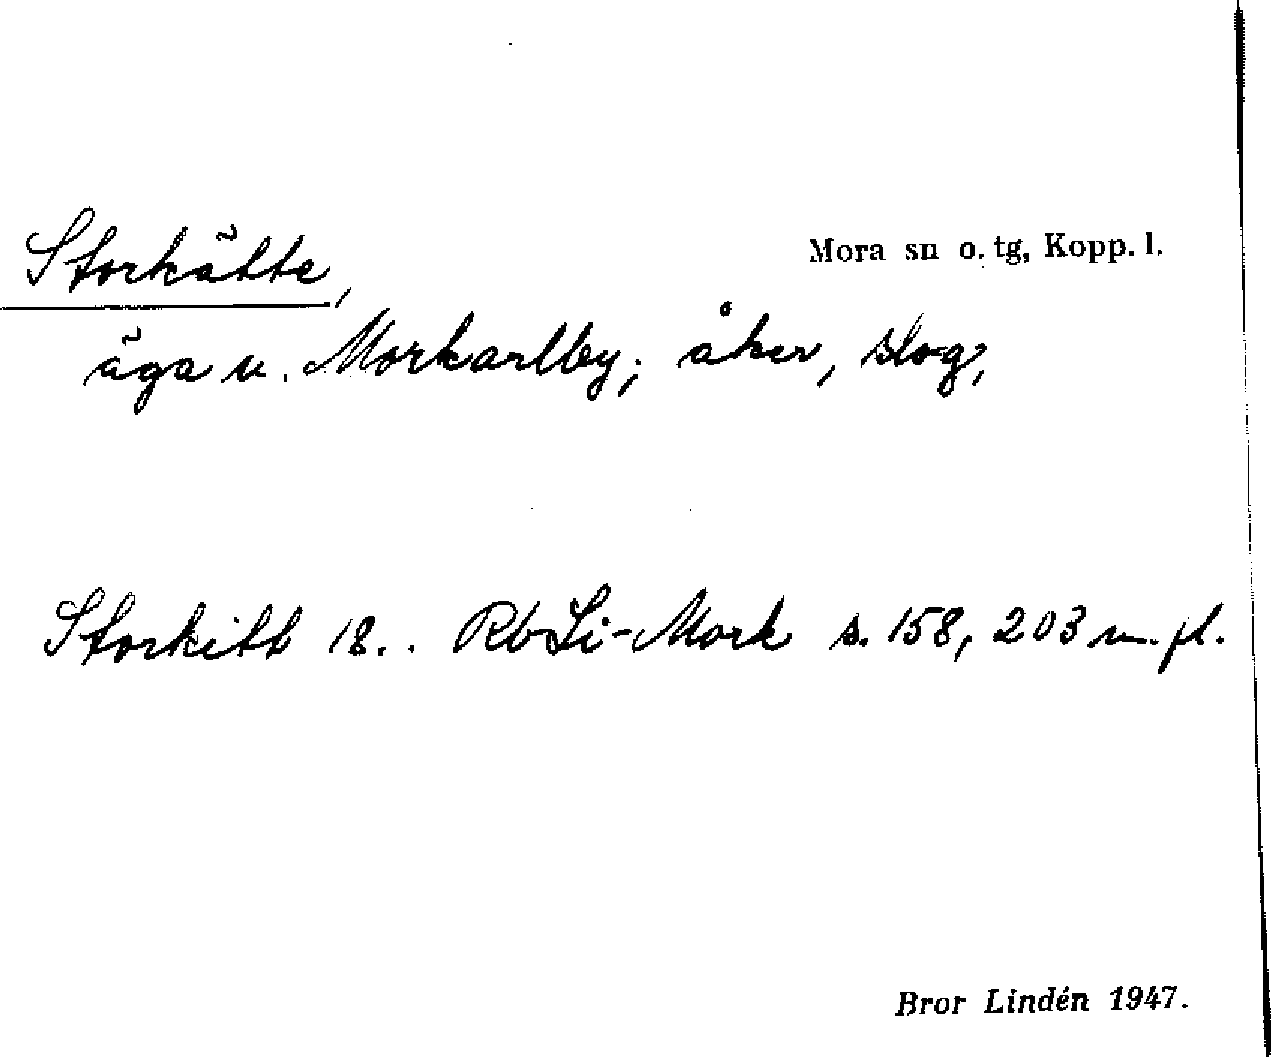 Storkätte,
Mora sn o. tg, Kopp. l.
äga u. Morkarlby; åker, slog,
Storkitt 18.. Rb Li-Mork s. 158, 203 m. fl.
Bror Lindén 1947.